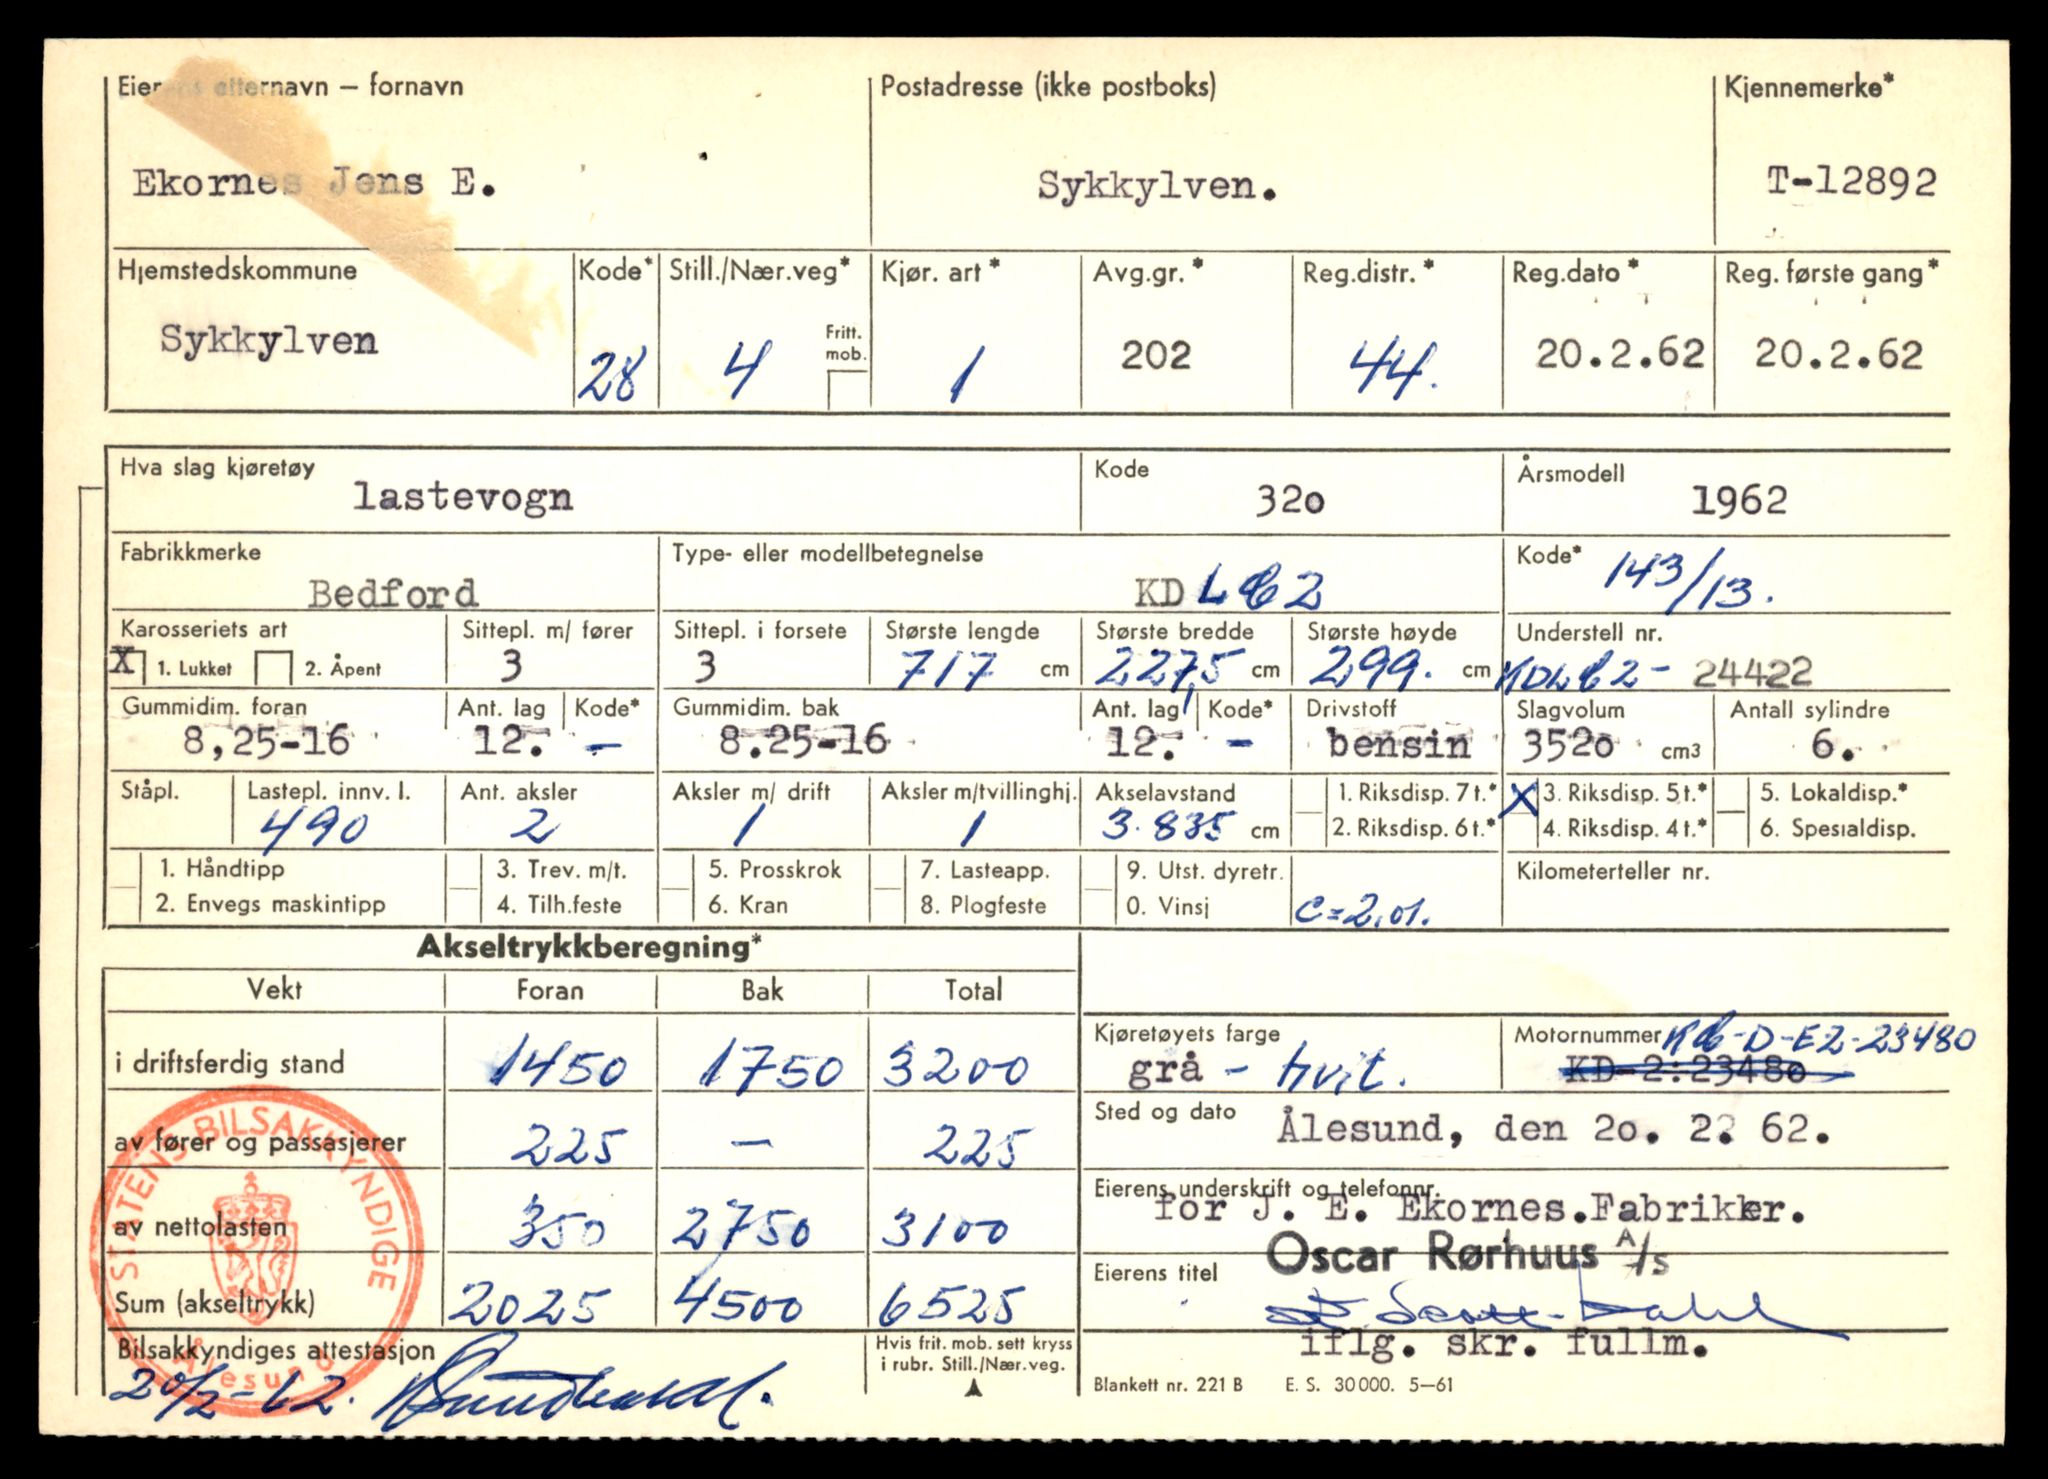 Eierens etternavn – fornavn Postadresse (ikke postboks) Kjennemerke*
Ekornes Jens E. Sykkylven. T-12892
Hjemstedskommune Kode* Still./Nær.veg* Kjør. art* Avg.gr.* Reg.distr.* Reg.dato* Reg. første gang*
Sykkylven 28 4 Fritt. mob. 1 202 44. 20.2.62 20.2.62
Hva slag kjøretøy Kode Årsmodell
lastevogn 32o 1962
Fabrikkmerke Type- eller modellbetegnelse Kode*
Bedford KD LC2 143/13.
Karosseriets art Sittepl. m/ fører Sittepl. i forsete Største lengde Største bredde Største høyde Understell nr.
X 1. Lukket 2. Åpent 3 3 717 cm 227,5 cm 299. cm KDLC2- 24422
Gummidim. foran Ant. lag Kode* Gummidim. bak Ant. lag Kode* Drivstoff Slagvolum Antall sylindre
8,25-16 12. – 8.25-16 12. – bensin 352o cm3 6.
Ståpl. Lastepl. innv. l. Ant. aksler Aksler m/ drift Aksler m/tvillinghj. Akselavstand 1. Riksdisp. 7 t.* X 3. Riksdisp. 5 t.* 5. Lokaldisp.*
490 2 1 1 3.835 cm 2. Riksdisp. 6 t.* 4. Riksdisp. 4 t.* 6. Spesialdisp.
1. Håndtipp 3. Trev. m/t. 5. Prosskrok 7. Lasteapp. 9. Utst. dyretr. Kilometerteller nr.
2. Envegs maskintipp 4. Tilh.feste 6. Kran 8. Plogfeste 0. Vinsj C=2,01.
Akseltrykkberegning*
Vekt Foran Bak Total
i driftsferdig stand 1450 1750 3200
Kjøretøyets farge Motornummer KC-D-E2-23480
grå – hvit. KD-2:2348o
av fører og passasjerer 225 – 225
Sted og dato Ålesund, den 2o. 2. 62.
av nettolasten 350 2750 3100
Eierens underskrift og telefonnr.
for J. E. Ekornes.Fabrikker.
Oscar Rørhuus A/S
Sum (akseltrykk) 2025 4500 6525
Eierens titel
iflg. skr. fullm.
Bilsakkyndiges attestasjon Hvis frit. mob. sett kryss
i rubr. Still./Nær.veg.
20/2-62.
Blankett nr. 221 B E. S. 30 000. 5–61
STATENS BILSAKKYNDIGE
Ålesund